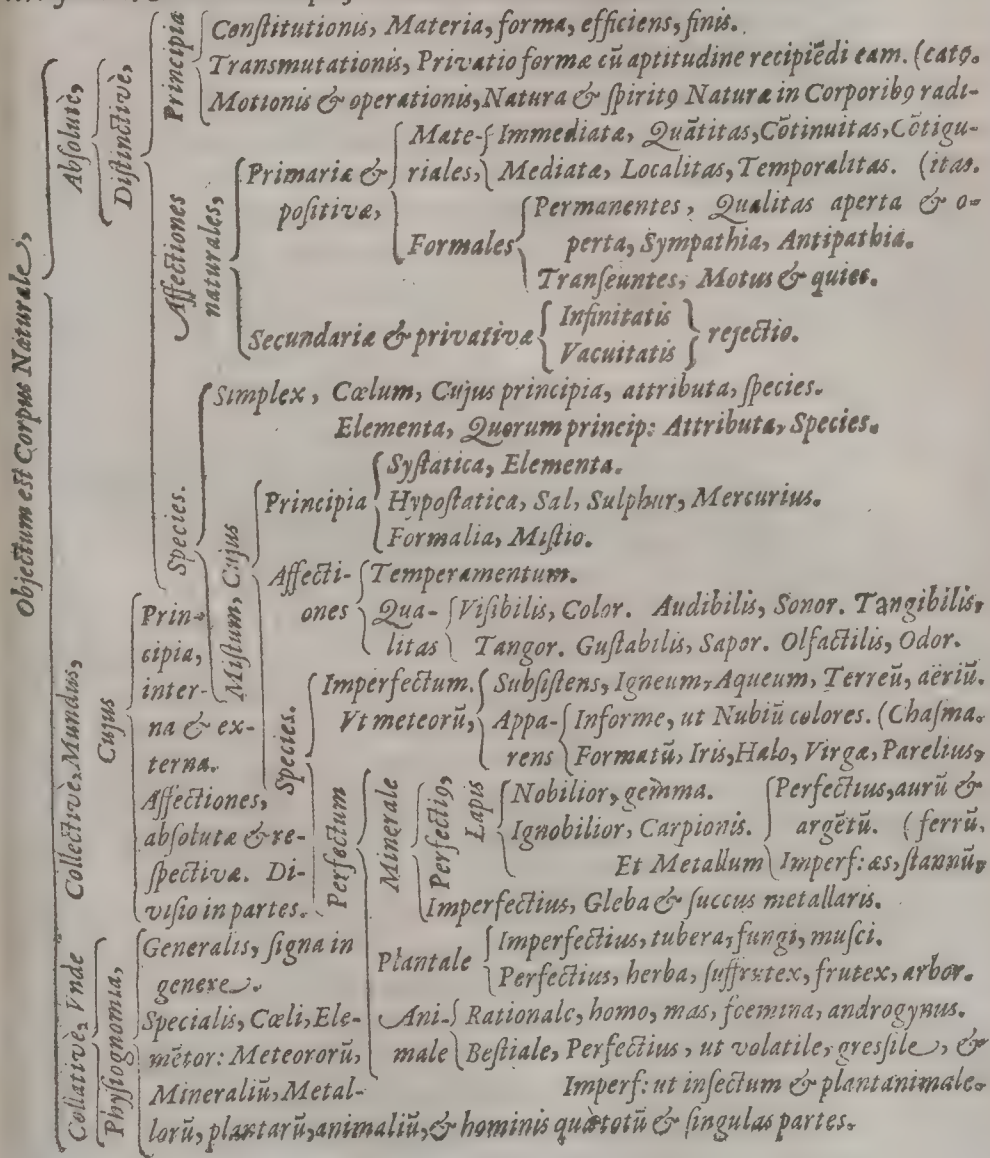 Objectum est Corpus Naturale,
Absolutè,
Distinctivè,
Principia
Constitutionis, Materia, forma, efficiens, finis.
Transmutationis, Privatio formæ cũ aptitudine recipiẽdi eam. (catꝰ.
Motionis & operationis, Natura & spiritꝰ Naturæ in Corporibꝰ radi-
Affectiones naturales,
Primariæ & positivæ,
Mate- riales,
Immediatæ, Quãtitas, Cõtinuitas, Cõtigu-
Mediatæ, Localitas, Temporalitas. (itas.
Formales
Permanentes, Qualitas aperta & o-
perta, Sympathia, Antipathia.
Transeuntes, Motus & quies.
Secundariæ & privativæ
Infinitatis
Vacuitatis
rejectio.
Species.
Simplex, Cœlum, Cujus principia, attributa, species.
Elementa, Quorum princip: Attributa, Species.
Mistum, Cujus
Principia
Systatica, Elementa.
Hypostatica, Sal, Sulphur, Mercurius.
Formalia, Mistio.
Affecti- ones
Temperamentum.
Qua- litas
Visibilis, Color. Audibilis, Sonor. Tangibilis,
Tangor. Gustabilis, Sapor. Olfactilis, Odor.
Species.
Imperfectum.
Vt meteorũ,
Subsistens, Igneum, Aqueum, Terreũ, aëriũ.
Appa- rens
Informe, ut Nubiũ colores. (Chasma.
Formatũ, Iris, Halo, Virgæ, Parelius,
Perfectum
Minerale
Perfectiꝰ,
Lapis
Nobilior, gem̃a.
Ignobilior, Carpionis.
Et Metallum
Perfectius, aurũ &
argẽtũ. (ferrũ.
Imperf: æs, stannũ,
Imperfectius, Gleba & succus metallaris.
Plantale
Imperfectius, tubera, fungi, musci.
Perfectius, herba, suffrutex, frutex, arbor.
Ani- male
Rationale, homo, mas, fœmina, androgynus.
Bestiale, Perfectius, ut volatile, gressile, &
Imperf: ut insectum & plantanimale.
Collectivè, Mundus,
Cujus
Prin-
cipia,
inter-
na & ex-
terna.
Affectiones,
absolutæ & re-
spectivæ. Di-
visio in partes.
Collativè, Vnde
Physiognomia,
Generalis, signa in
genere.
Specialis, Cœli, Ele-
mẽtor: Meteororũ,
Mineraliũ, Metal-
lorũ, plantarũ, animaliũ, & hominis quà totũ & singulas partes.